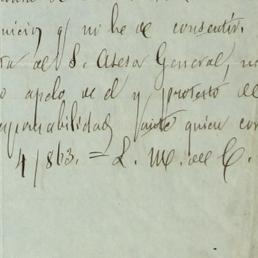 nicio y no he de consentir.
ta al S. Asesor General, no
o apelo de el y protesto de
esponsabilidad ante quien cor
4/863. = L. M. del C.